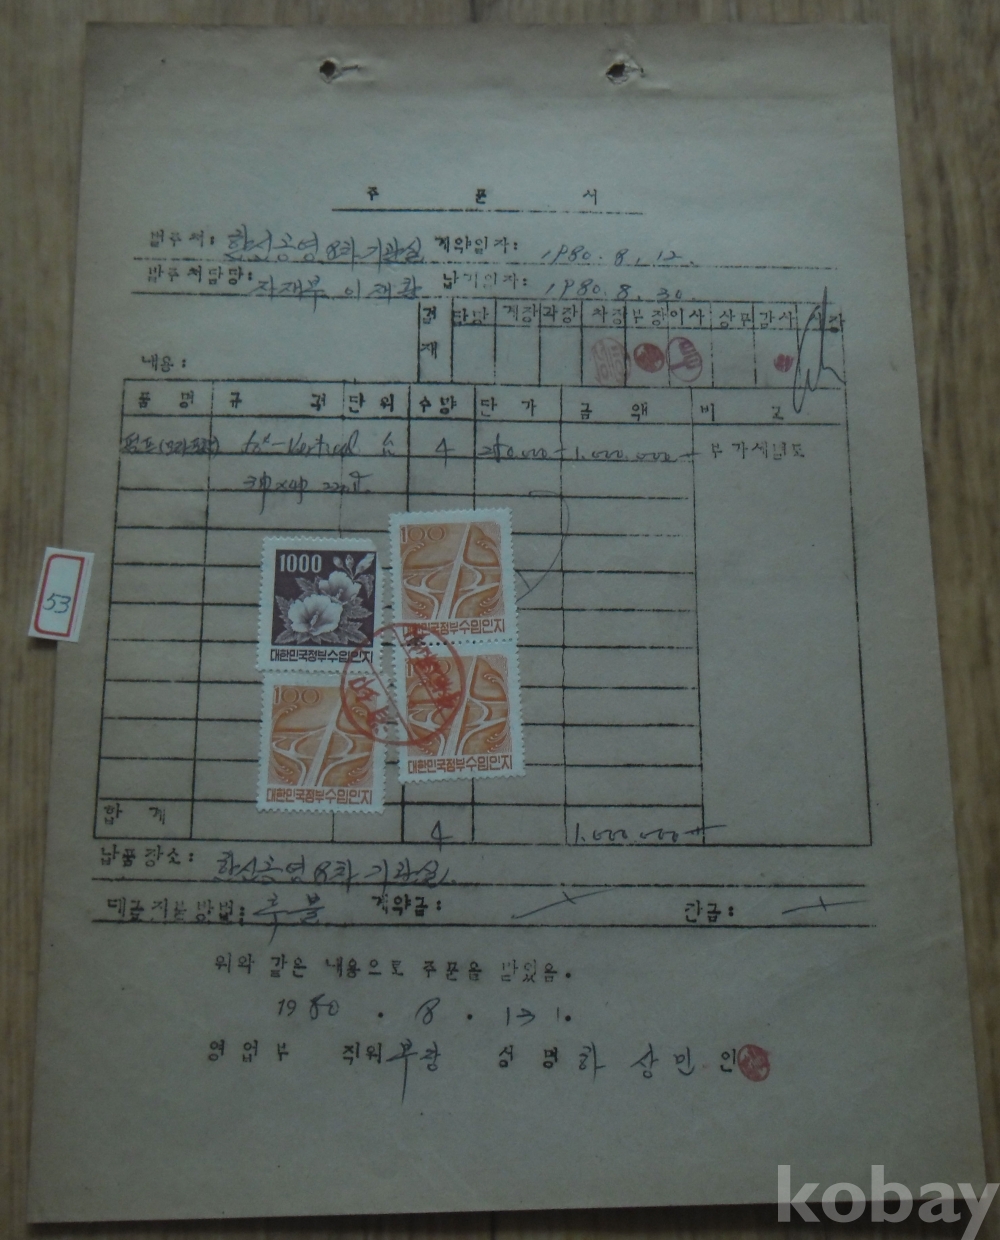 주 문 서
발주처: 한신공영 8차 기관실 계약일자: 1980. 8. 12.
발주처담당: 자재부 이재환 납기일자: 1980. 8. 30.
결재 담당 계장 과장 차장 부장 이사 상무 감사 사장
내용:
품 명 규 격 단위 수량 단 가 금 액 비 고
Vertical 4 250.000- 1.000.000- 부가세별도
1000
대한민국정부수입인지
100
대한민국정부수입인지
100
대한민국정부수입인지
100
대한민국정부수입인지
53
합 계 4 1.000.000-
납품장소: 한신공영 8차 기관실.
대금지불방법: 후불 계약금: 잔금:
위와 같은 내용으로 주문을 받었음.
1980 . 8 . 13 .
영업부 직위 부장 성명 하상민 인
kobay